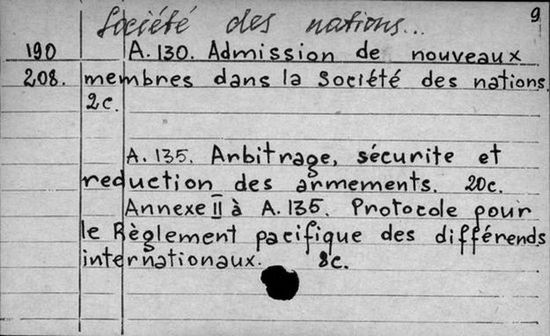 Société des nations... 9
190 A.130. Admission de nouveaux
208. membres dans la Société des nations.
2c.
A.135. Arbitrage, sécurite et
reduction des armements. 20c.
Annexe II à A.135. Protocole pour
le Règlement pacifique des différends
internationaux. 8c.